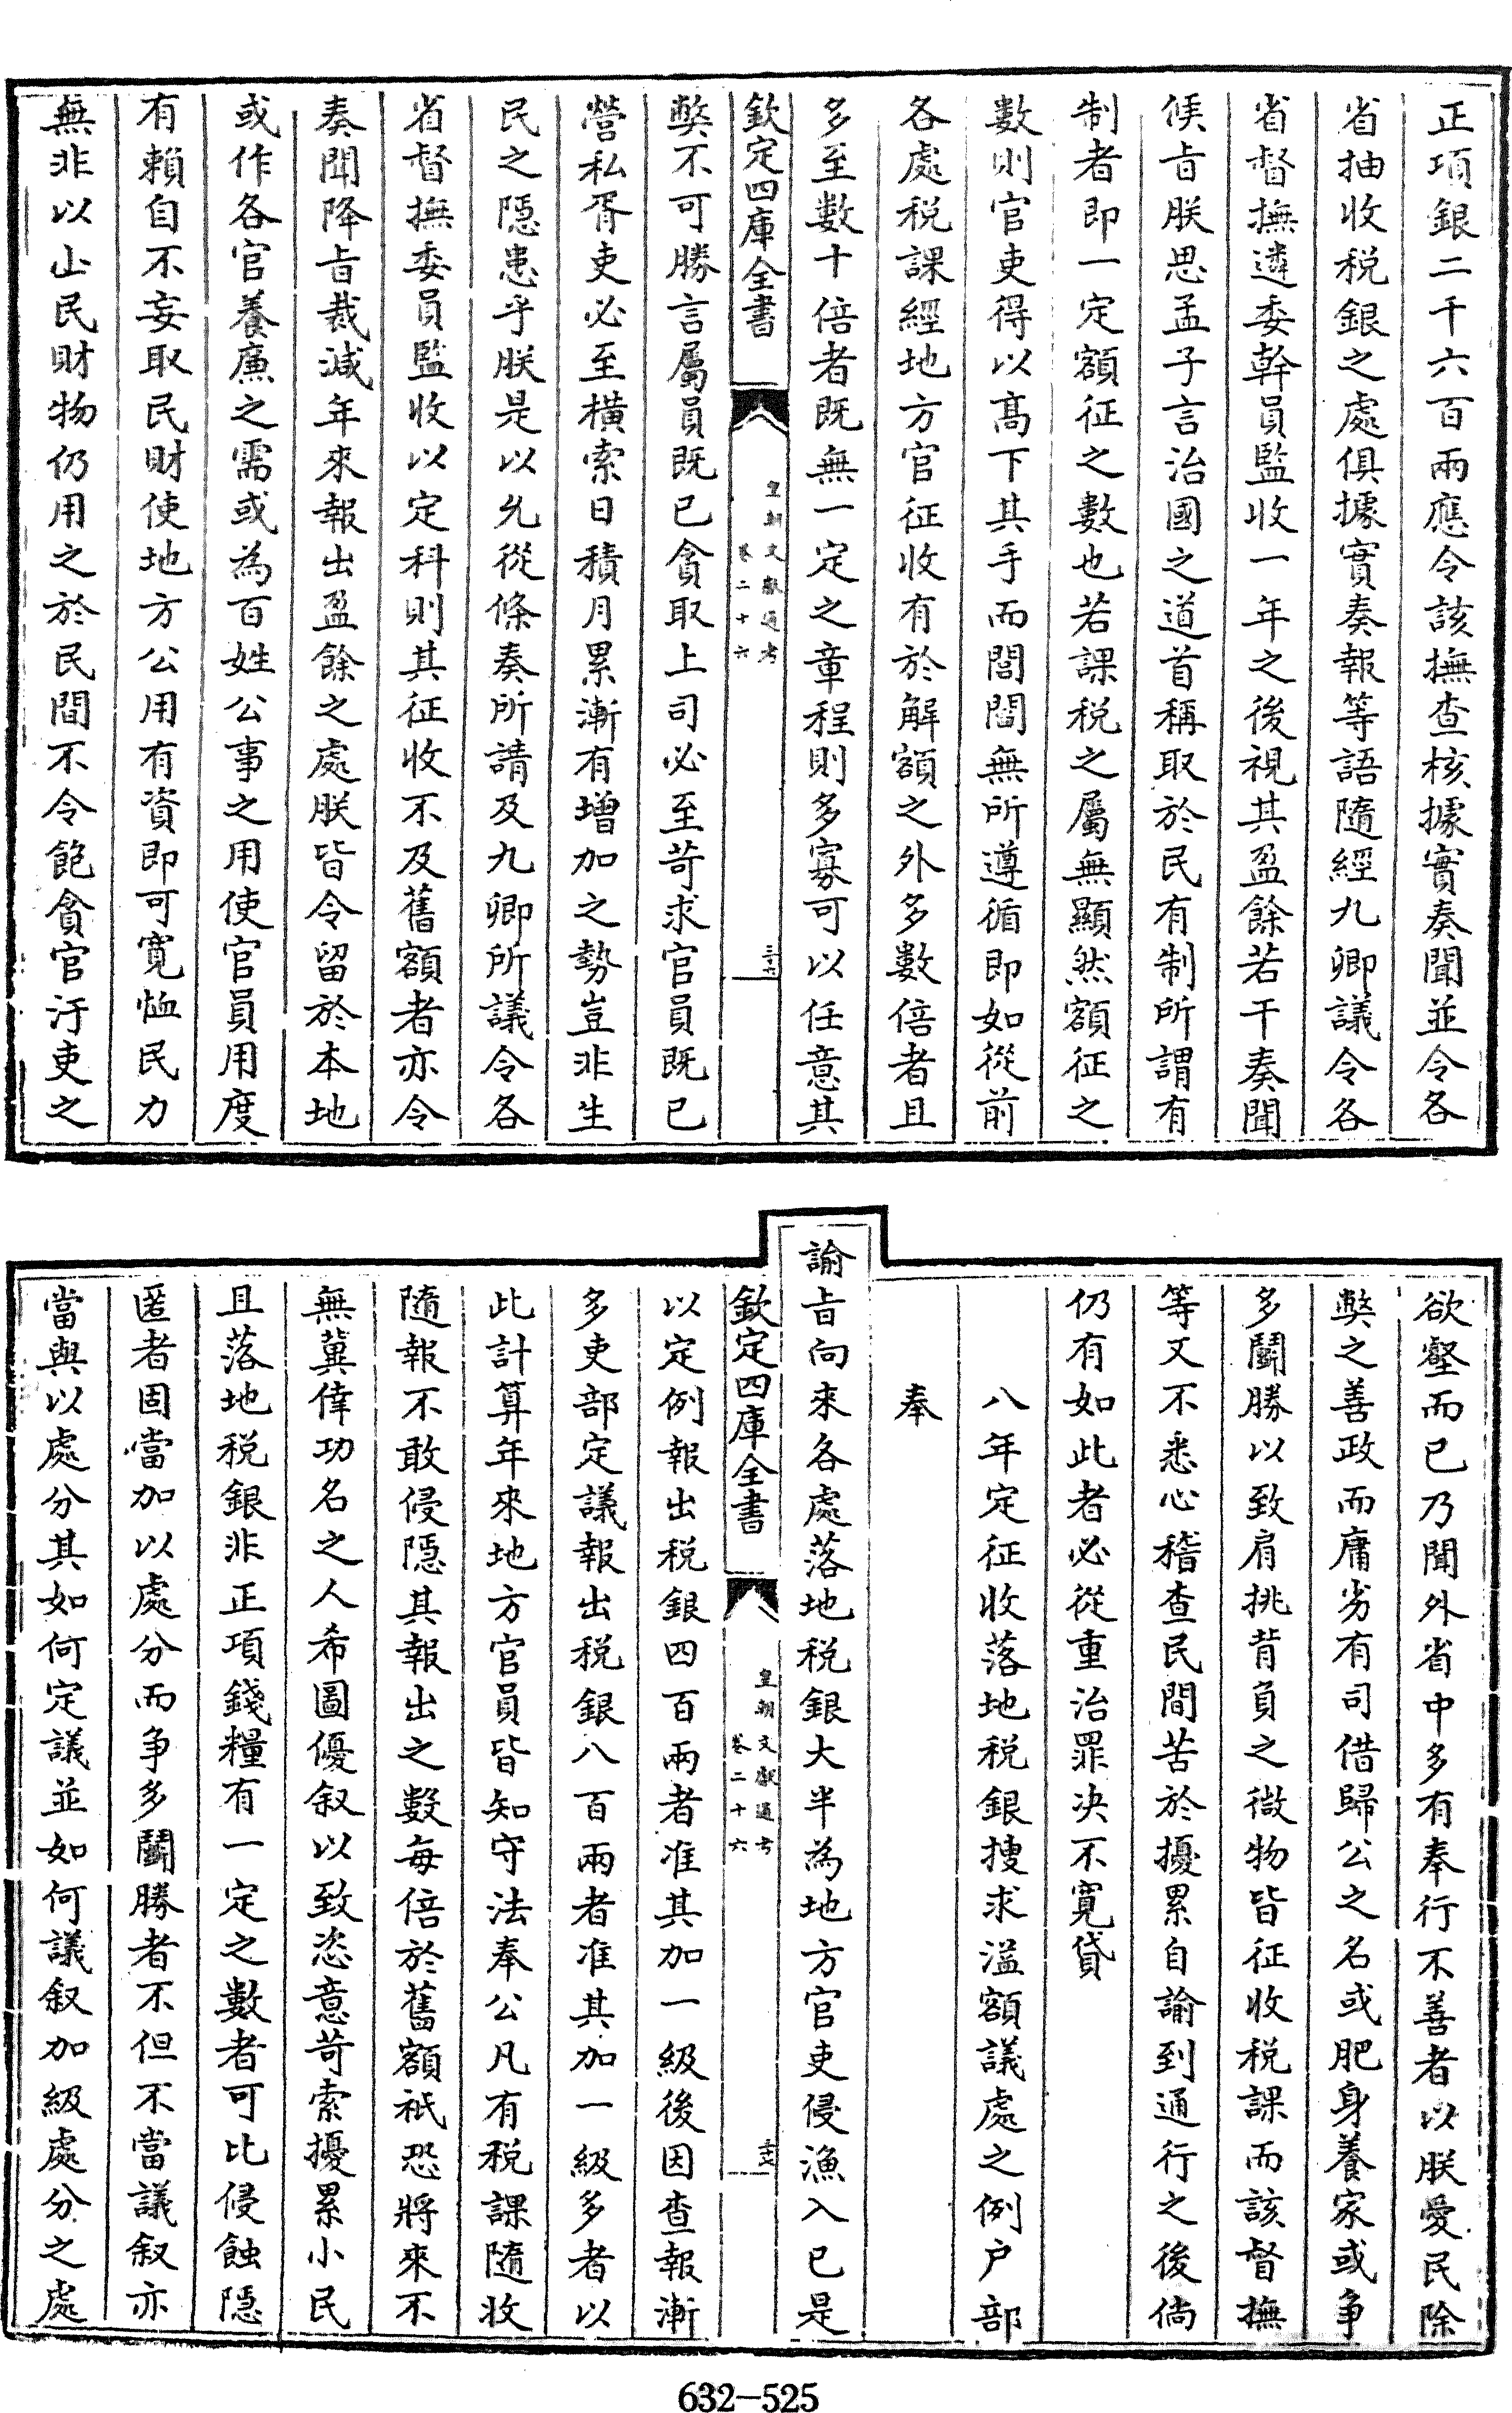 正項銀二千六百兩應令該撫查核據實奏聞並令各
省抽收税銀之處俱據實奏報等語隨經九卿議令各
省督撫遴委幹員監收一年之後視其盈餘若干奏聞
候㫖朕思孟子言治國之道首稱取於民有制所謂有
制者即一定額征之數也若課税之屬無顯然額征之
數則官吏得以髙下其手而閭閻無所遵循即如從前
各處税課經地方官征收有於解額之外多數倍者且
多至數十倍者既無一定之章程則多寡可以任意其
欽定四庫全書
皇朝文獻通考
卷二十六
三十六
弊不可勝言屬員既已貪取上司必至苛求官員既已
營私胥吏必至橫索日積月累漸有增加之勢豈非生
民之隱患乎朕是以允從條奏所請及九卿所議令各
省督撫委員監收以定科則其征收不及舊額者亦令
奏聞降㫖裁減年來報出盈餘之處朕皆令留於本地
或作各官養廉之需或為百姓公事之用使官員用度
有賴自不妄取民財使地方公用有資即可寛恤民力
無非以山民財物仍用之於民間不令飽貪官汙吏之
欲壑而已乃聞外省中多有奉行不善者以朕愛民除
弊之善政而庸劣有司借歸公之名或肥身養家或争
多鬭勝以致肩挑背負之微物皆征收税課而該督撫
等又不悉心稽查民間苦於擾累自諭到通行之後倘
仍有如此者必從重治罪决不寛貸
八年定征收落地税銀搜求溢額議處之例户部
奉
諭㫖向來各處落地税銀大半為地方官吏侵漁入已是
欽定四庫全書
皇朝文獻通考
卷二十六
三十七
以定例報出税銀四百兩者准其加一級後因查報漸
多吏部定議報出税銀八百兩者准其加一級多者以
此計算年來地方官員皆知守法奉公凡有税課隨收
隨報不敢侵隱其報出之數每倍於舊額祇恐將來不
無冀倖功名之人希圖優叙以致恣意苛索擾累小民
且落地税銀非正項錢糧有一定之數者可比侵蝕隱
匿者固當加以處分而争多鬭勝者不但不當議叙亦
當與以處分其如何定議並如何議叙加級處分之處
632-525